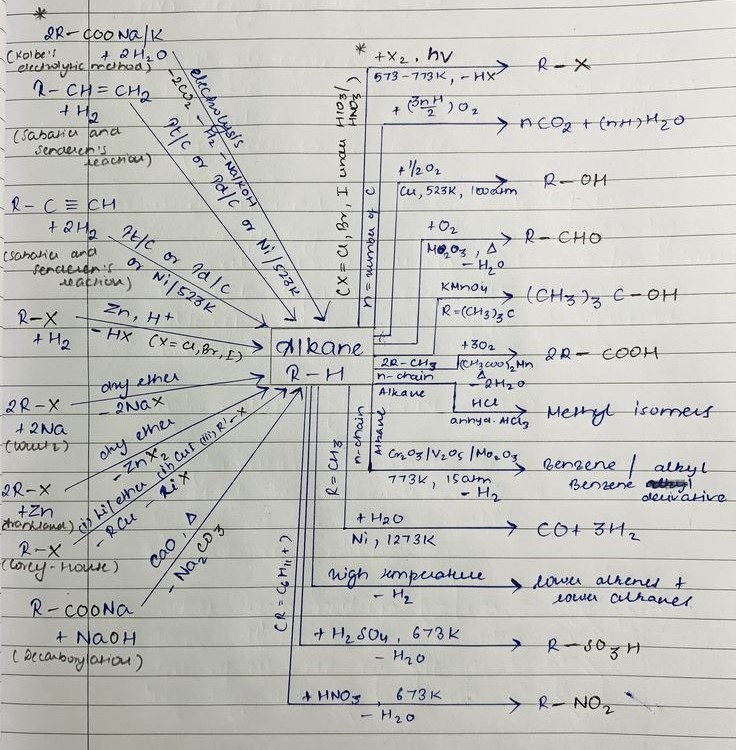 *
2R-COONa/K
+ 2H2O
(Kolbe's
electrolytic method)
electrolysis
-2CO2 -H2 -Na/KOH
R-CH=CH2
+ H2
(Sabatier and
senderen's
reaction)
Pt/C or Pd/C or Ni/523K
R-C≡CH
+ 2H2
(Sabatier and
senderen's
reaction)
Pt/C or Pd/C
or Ni/523K
R-X
+ H2
Zn, H+
-HX (X=Cl,Br,I)
2R-X
+ 2Na
(Wurtz)
dry ether
-2NaX
2R-X
+Zn
(Frankland)
dry ether
-ZnX2
R-X
(Corey-House)
(i) Li/ether (ii) CuI (iii) R'-X
-RCu -LiX
R-COONa
+ NaOH
(Decarboxylation)
CaO, Δ
-Na2CO3
Alkane
R-H
*
+X2, hν
573-773K, -HX
R-X
(X=Cl, Br, I under HIO3/
HNO3)
+(3n+1/2)O2
nCO2 + (n+1)H2O
n=number of C
+1/2O2
Cu, 523K, 100atm
R-OH
+O2
Mo2O3, Δ
-H2O
R-CHO
KMnO4
R=(CH3)3C
(CH3)3 C-OH
2R-CH3
+3O2
(CH3COO)2Mn
Δ
-2H2O
2R-COOH
n-chain
Alkane
HCl
anhyd. AlCl3
Methyl isomers
n-chain
Alkane
Cr2O3/V2O5/Mo2O3
773K, 15atm
-H2
Benzene / alkyl
Benzene derivative
R=CH3
+H2O
Ni, 1273K
CO+3H2
high temperature
-H2
lower alkenes +
lower alkanes
(R=C6H11+)
+H2SO4, 673K
-H2O
R-SO3H
+HNO3, 673K
-H2O
R-NO2